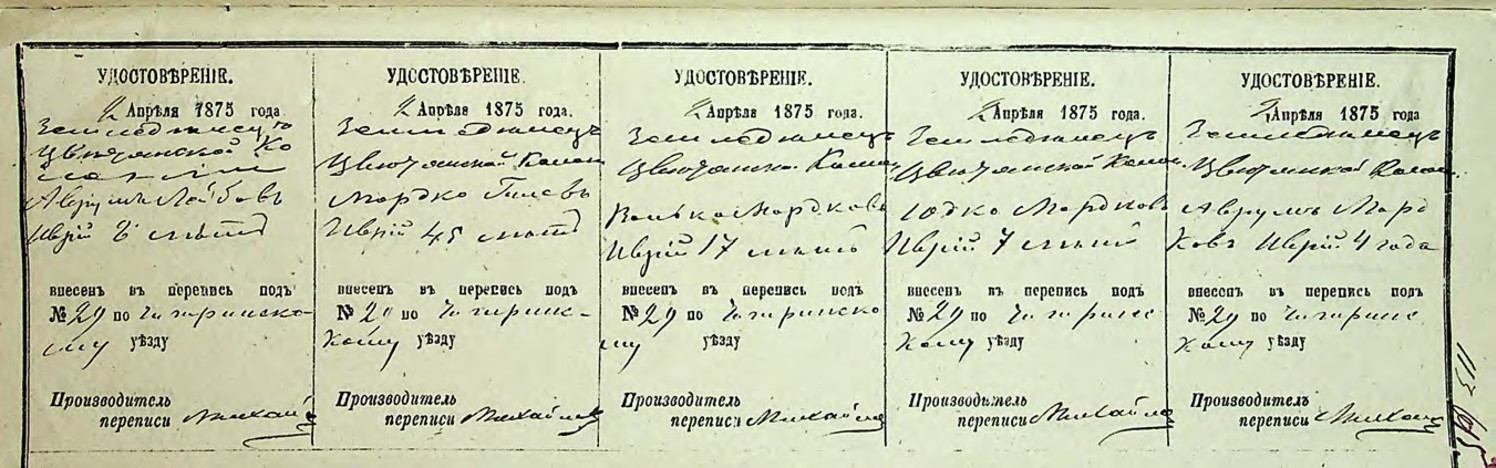 УДОСТОВѢРЕНІЕ.
2 Апрѣля 1875 года.
Земледѣлецъ
Цвѣтянской Ко
лоніи
Аврумъ Лейбовъ
Иврій 8 лѣтъ
внесенъ въ перепись подъ
№ 29 по Чигиринско-
му уѣзду
Производитель
переписи
УДОСТОВѢРЕНІЕ.
2 Апрѣля 1875 года.
Земледѣлецъ
Цвѣтянской Колон
Мордко
Иврій 45 лѣтъ
внесенъ въ перепись подъ
№ 29 по Чигиринс-
кому уѣзду
Производитель
переписи Михайло
УДОСТОВѢРЕНІЕ.
2 Апрѣля 1875 года.
Земледѣлецъ
Цвѣтянской Колон
Волько Мордковъ
Иврій 17 лѣтъ
внесенъ въ перепись подъ
№ 29 по Чигиринско
му уѣзду
Производитель
переписи Михайло
УДОСТОВѢРЕНІЕ.
2 Апрѣля 1875 года.
Земледѣлецъ
Цвѣтянской Колон
Юдко Мордков
Иврій 7 лѣтъ
внесенъ въ перепись подъ
№ 29 по Чигиринс
кому уѣзду
Производитель
переписи Михайло
УДОСТОВѢРЕНІЕ.
2 Апрѣля 1875 года
Земледѣлецъ
Цвѣтянской Колон
Аврумъ Морд
ковъ Иврій 4 года
внесенъ въ перепись подъ
№ 29 по Чигиринс
кому уѣзду
Производитель
переписи